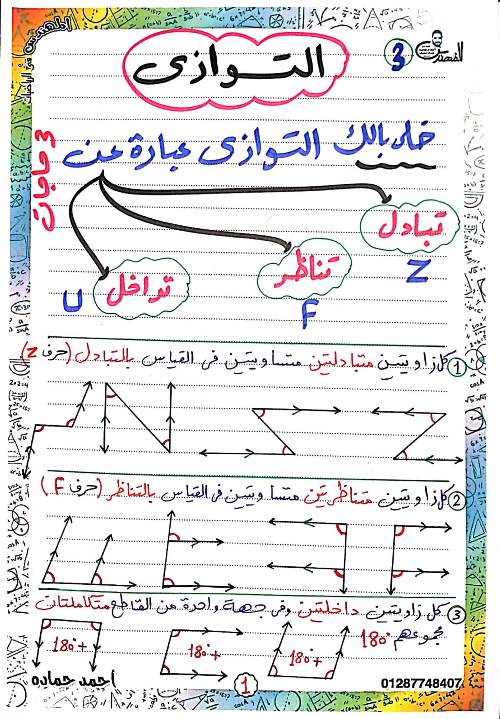 المهندس فى الرياضيات
المهندس
3
التوازى
خلى بالك التوازى عبارة عن
3 حاجات
تبادل
Z
تناظر
F
تداخل
U
1 كل زاويتين متبادلتين متساويتين فى القياس بالتبادل (حرف Z)
2 كل زاويتين متناظرتين متساويتين فى القياس بالتناظر (حرف F)
3 كل زاويتين داخلتين وفى جهة واحدة من القاطع متكاملتان
مجموعهم 180°
180°+
180°+
180°+
أحمد حماده
1
01287748407